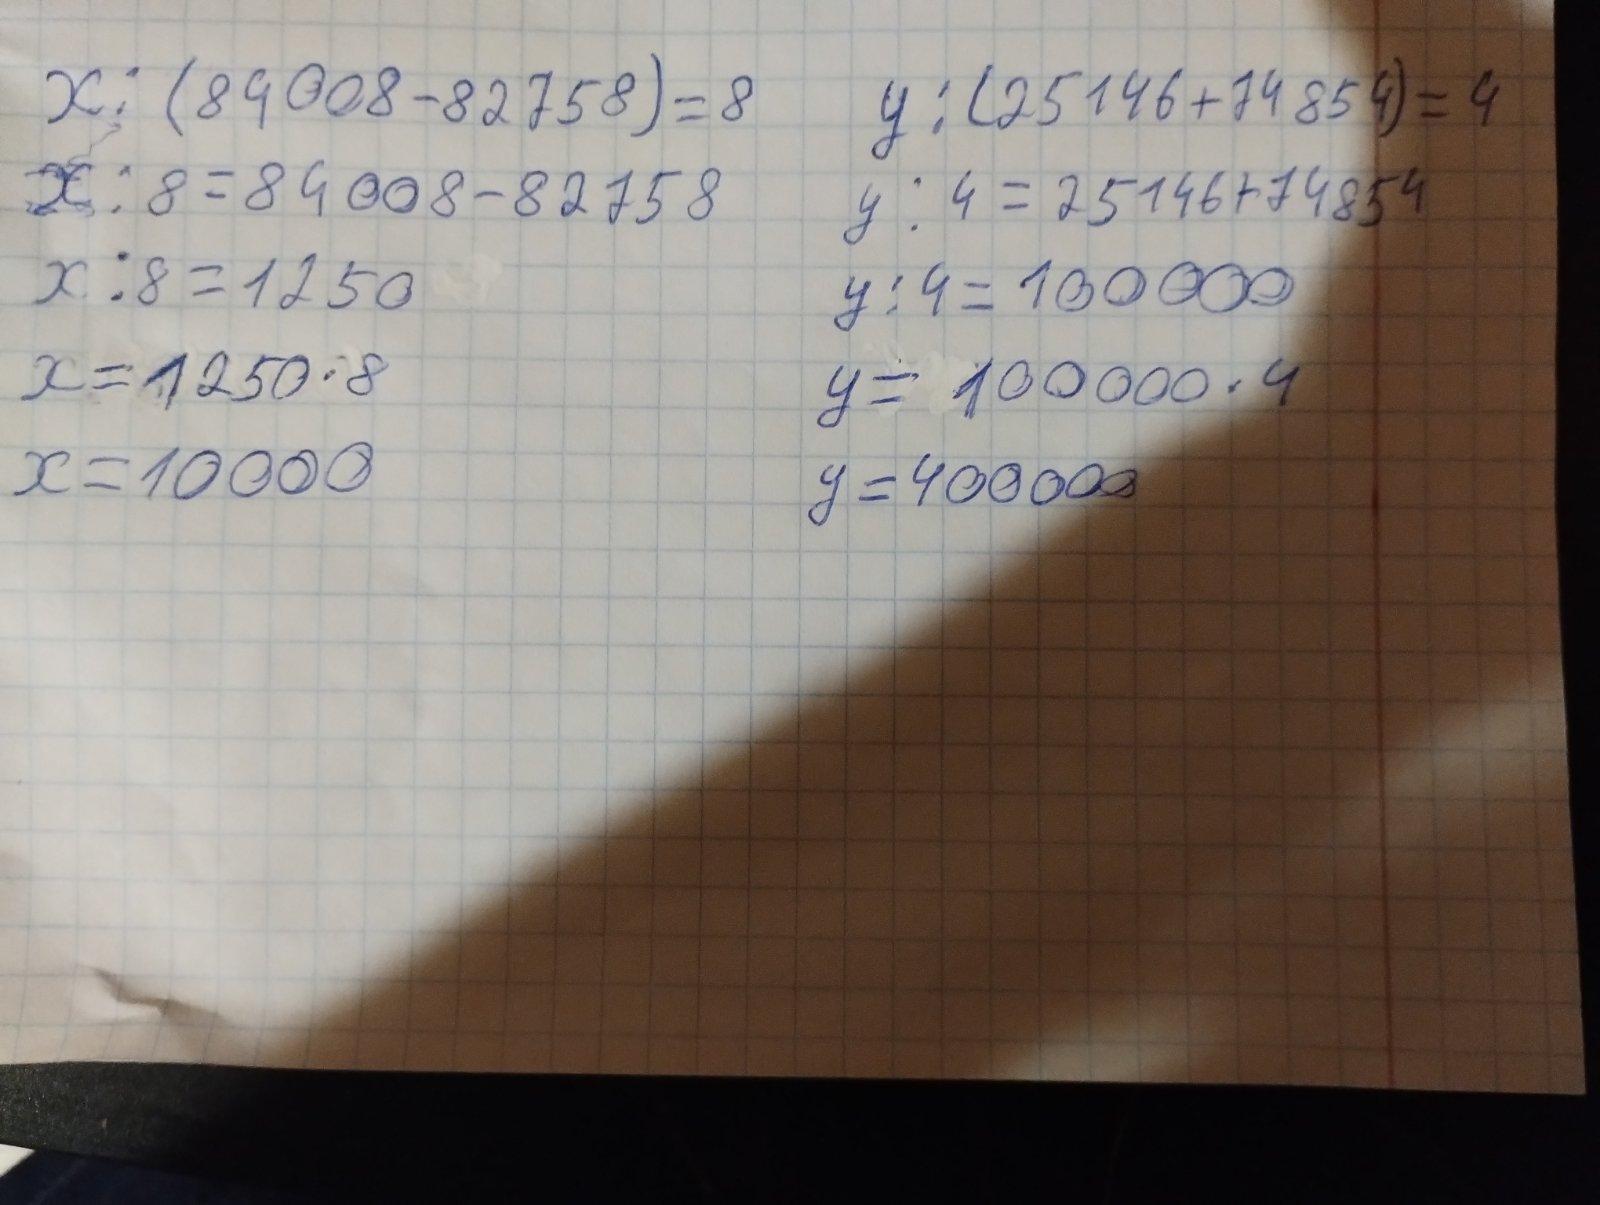 x:(84008-82758)=8
x:8=84008-82758
x:8=1250
x=1250·8
x=10000
y:(25146+74854)=4
y:4=25146+74854
y:4=100000
y=100000·4
y=400000